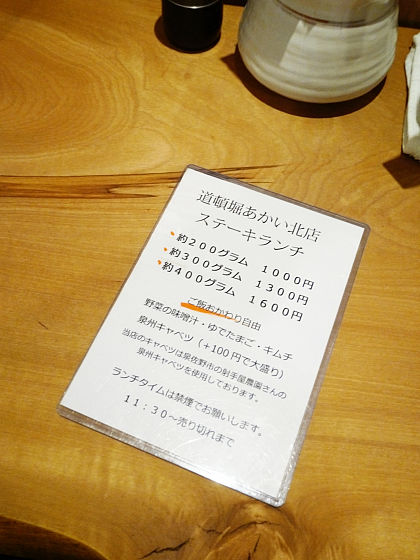 道頓堀あかい北店
ステーキランチ
約200グラム 1000円
約300グラム 1300円
約400グラム 1600円
ご飯おかわり自由
野菜の味噌汁・ゆでたまご・キムチ
泉州キャベツ（+100円で大盛り）
当店のキャベツは泉佐野市の射手屋農園さんの
泉州キャベツを使用しております。
ランチタイムは禁煙でお願いします。
11：30～売り切れまで